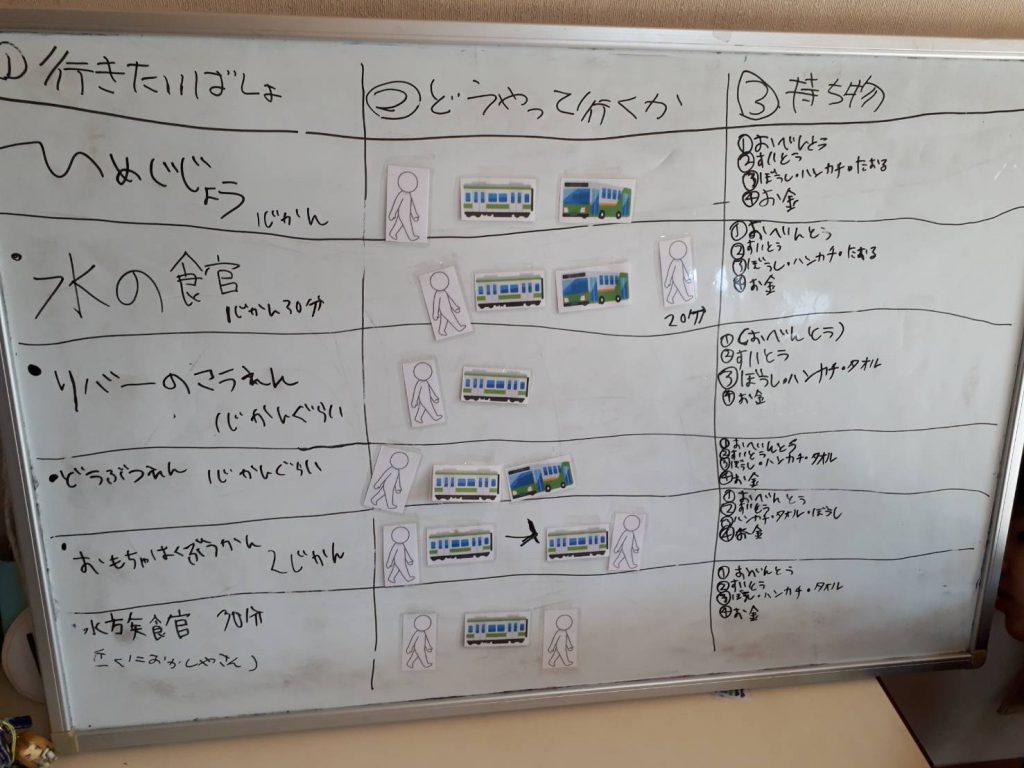 ① 行きたいばしょ
② どうやって行くか
③ 持ち物
ひめじじょう
1じかん
①おべんとう
②すいとう
③ぼうし・ハンカチ・たおる
④お金
水の食官
1じかん30分
20分
①おべんとう
②すいとう
③ぼうし・ハンカチ・たおる
④お金
・リバーのこうえん
1じかんぐらい
①(おべんとう)
②すいとう
③ぼうし・ハンカチ・タオル
④お金
・どうぶつえん 1じかんぐらい
①おべんとう
②すいとう
③ぼうし・ハンカチ・タオル
④お金
・おもちゃはくぶつかん 2じかん
①おべんとう
②すいとう
③ハンカチ・タオル・ぼうし
④お金
・水方矣食官 30分
おかしやさん)
①おべんとう
②すいとう
③ぼうし・ハンカチ・タオル
④お金